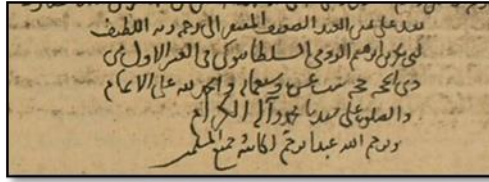 على يدى العبد الضعيف المفتقر الى رحمة ربه اللطيف
بن ابرهيم الرومى فى العشر الاول من
ذى الحجه حجه ست عشر وسبعمايه والحمد لله على الاتمام
والصلوة على سيدنا محمد وآله الكرام
ويرحم الله عبدا ترحم لكاتبه جميع المسلمين